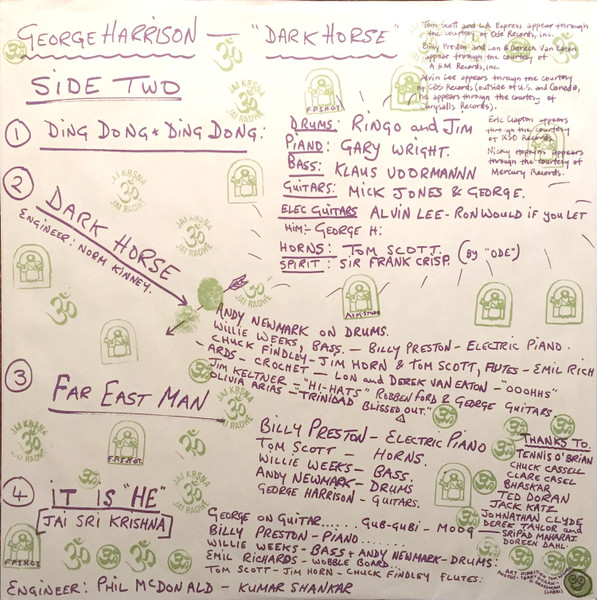 GEORGE HARRISON — "DARK HORSE"
Tom Scott and L.A. Express appear through
the courtesy of Ode Records, inc.
Billy Preston and Lon & Derrek Van Eaton
appear through the courtesy of
A & M Records, inc.
Alvin Lee appears through the courtesy
of CBS Records (outside of U.S. and Canada,
he appears through the courtesy of
Chrysalis Records).
Eric Clapton appears
through the courtesy
of RSO Records.
Nicky Hopkins appears
through the courtesy of
Mercury Records.
SIDE TWO
① DING DONG * DING DONG:
DRUMS: RINGO and JIM
PIANO: GARY WRIGHT.
BASS: KLAUS VOORMANN
GUITARS: MICK JONES & GEORGE.
ELEC GUITARS ALVIN LEE - RON WOULD IF YOU LET
HIM:- GEORGE H:
HORNS: TOM SCOTT. (BY "ODE")
SPIRIT: SIR FRANK CRISP.
② DARK HORSE
ENGINEER: NORM KINNEY.
ANDY NEWMARK ON DRUMS.
WILLIE WEEKS, BASS. — BILLY PRESTON - ELECTRIC PIANO.
CHUCK FINDLEY - JIM HORN & TOM SCOTT, FLUTES - EMIL RICH
- ARDS - CROCHET - LON and DEREK VAN EATON - "OOOHHS"
JIM KELTNER - "HI-HATS" ROBBEN FORD & GEORGE GUITARS
OLIVIA ARIAS - "TRINIDAD BLISSED OUT."
③ FAR EAST MAN
BILLY PRESTON - ELECTRIC PIANO
TOM SCOTT - HORNS.
WILLIE WEEKS - BASS.
ANDY NEWMARK - DRUMS
GEORGE HARRISON - GUITARS.
④ IT IS "HE"
JAI SRI KRISHNA
GEORGE ON GUITAR..... GUB-GUBI - MOOG
BILLY PRESTON - PIANO.......
WILLIE WEEKS - BASS + ANDY NEWMARK - DRUMS:
EMIL RICHARDS - WOBBLE BOARD...
TOM SCOTT - JIM HORN - CHUCK FINDLEY FLUTES:
ENGINEER: PHIL McDONALD - KUMAR SHANKAR
THANKS TO
TENNIS O'BRIAN
CHUCK CASSELL
CLARE CASEL
BHASKAR
TED DORAN
JACK KATZ
JOHNATHAN CLYDE
DEREK TAYLOR and
SRIPAD MAHARAJ
DOREEN DAHL
JAI KRSNA
ॐ
JAI RADHE
F.P.S.H.O.T.